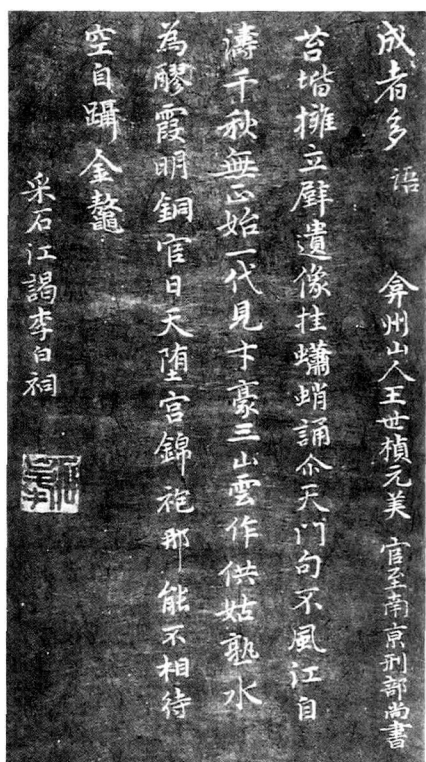 成者多 語 弇州山人王世楨元美 官至南京刑部尚書
苔堦擁立壁遺像挂蠨蛸誦尒天門句不風江自
濤千秋無正始一代見才豪三山雲作供姑熟水
為醪霞明銅官日天墮宮錦袍那能不相待
空自躡金鰲
采石江謁李白祠